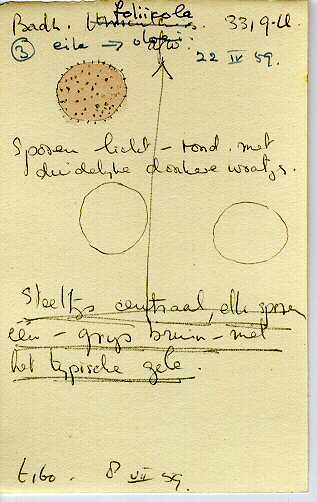 foliicola
Badh. 33, 9-U
③ eik →
22 IV 59.
Sporen licht – rond. met
duidelijke donkere wratjes.
Steeltjes centraal, elke sporen
één – grijs bruin – met
het typische gele.
8 VII 59.